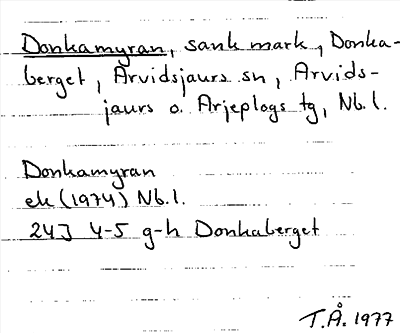 Donkamyran, sank mark, Donka-
berget, Arvidsjaurs sn, Arvids-
jaurs o. Arjeplogs tg, Nb.l.
Donkamyran
ek (1974) Nb.l.
24J 4-5 g-h Donkaberget
T.Å. 1977